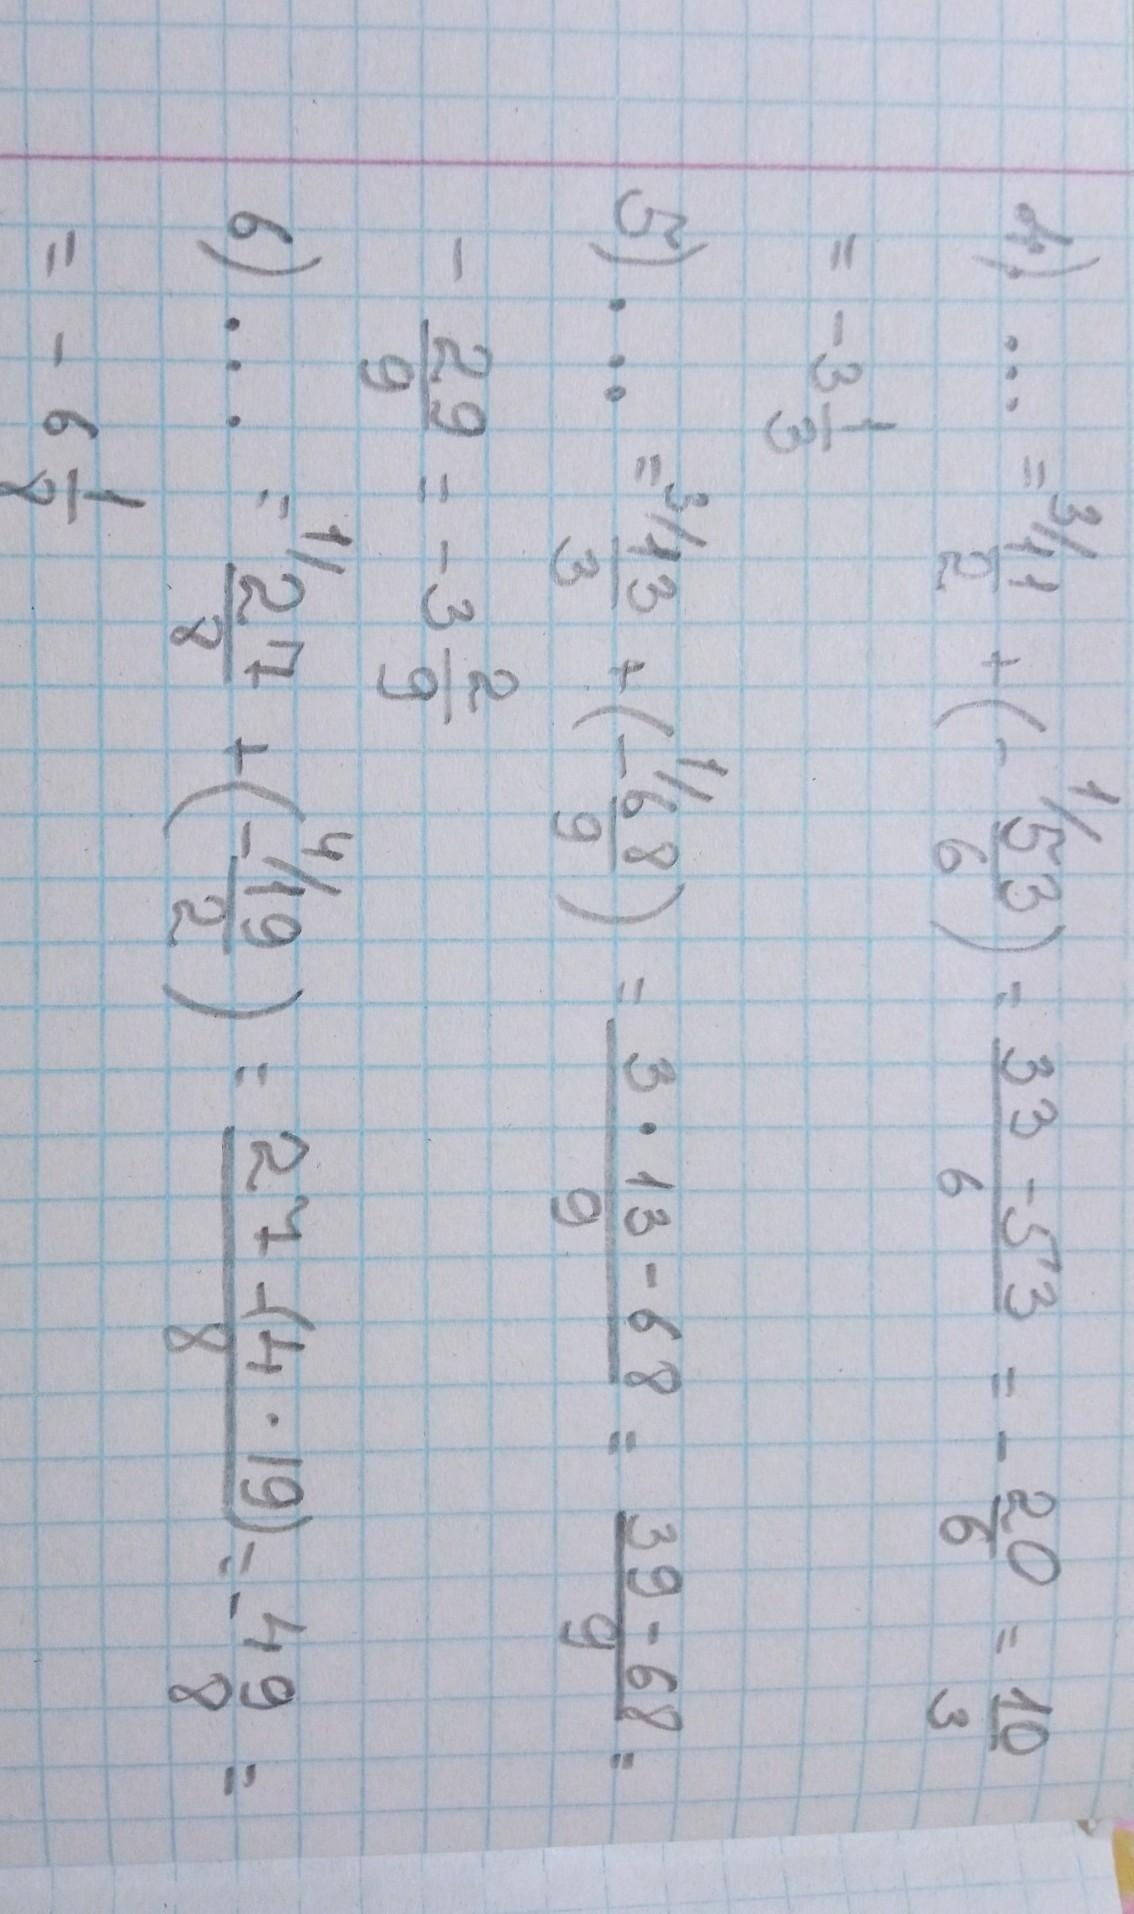 4) ... = ³/11/2 + (- ¹/53/6) = 33-53/6 = - 20/6 = 10/3
= -3 1/3
5) ... = ³/13/3 + (- ¹/68/9) = 3·13-68/9 = 39-68/9 =
- 29/9 = -3 2/9
6) ... = ¹/27/8 + (- ⁴/19/2) = 27-(4·19)/8 = - 49/8 =
= - 6 1/8